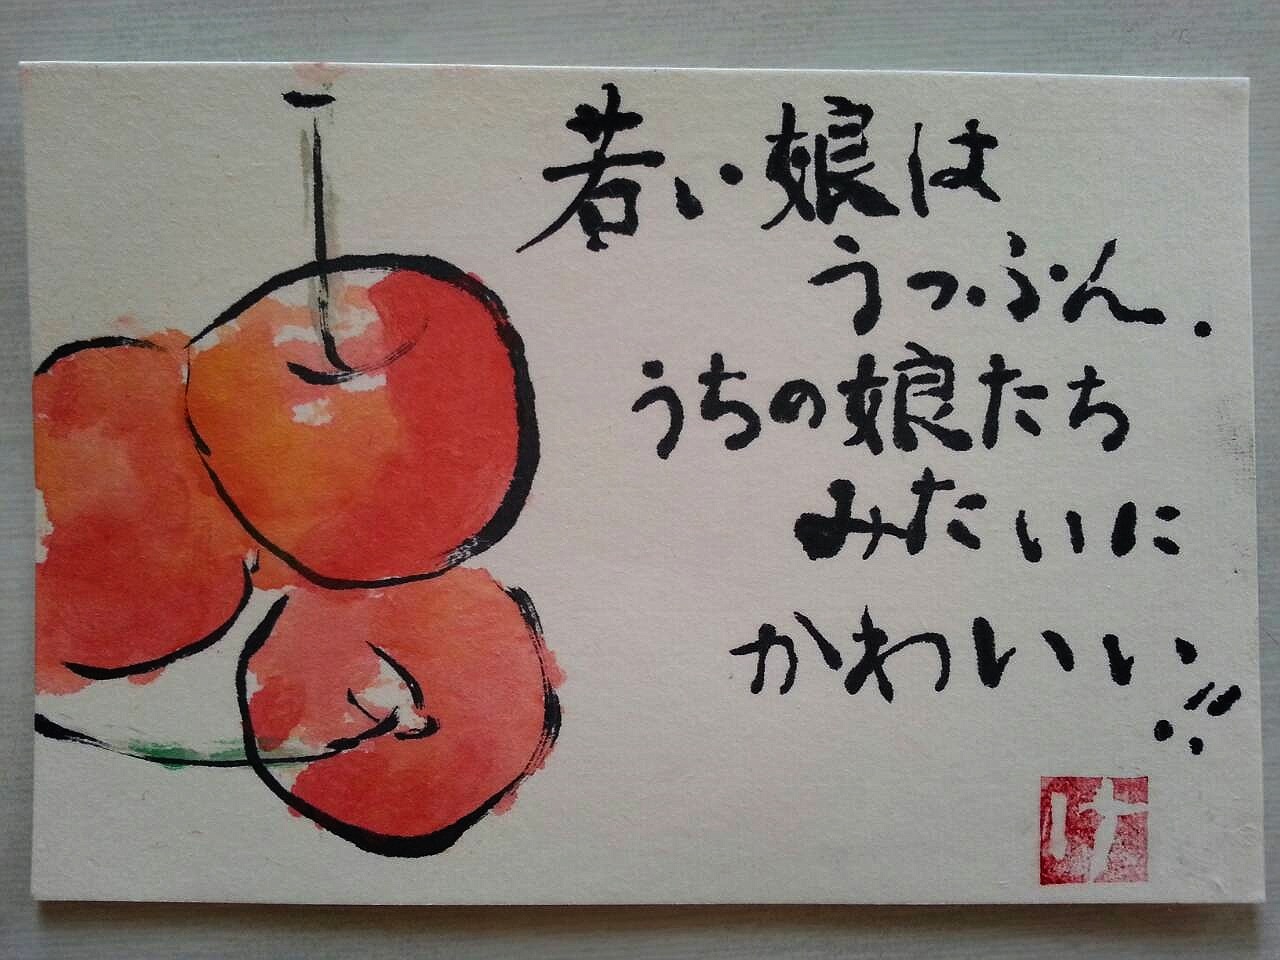 若い娘は
うっぷん.
うちの娘たち
みたいに
かわいい!!
け